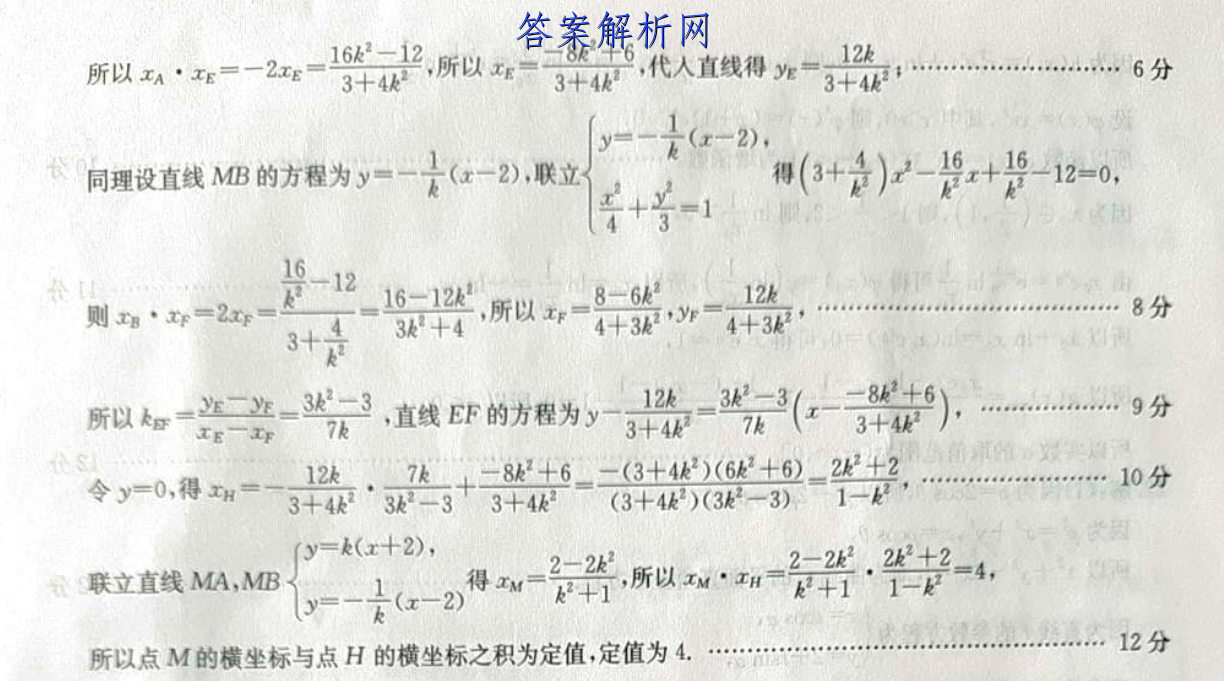 答案解析网
所以 x_A · x_E = -2x_E = \frac{16k²-12}{3+4k²},所以 x_E = \frac{-8k²+6}{3+4k²},代入直线得 y_E = \frac{12k}{3+4k²}; …………………… 6 分
同理设直线 MB 的方程为 y = -\frac{1}{k}(x-2),联立 \begin{cases} y=-\frac{1}{k}(x-2), \\ \frac{x²}{4}+\frac{y²}{3}=1 \end{cases} 得(3+\frac{4}{k²})x²-\frac{16}{k²}x+\frac{16}{k²}-12=0,
则 x_B · x_F = 2x_F = \frac{\frac{16}{k²}-12}{3+\frac{4}{k²}} = \frac{16-12k²}{3k²+4},所以 x_F = \frac{8-6k²}{4+3k²}, y_F = \frac{12k}{4+3k²}, …………………… 8 分
所以 k_{EF} = \frac{y_E-y_F}{x_E-x_F} = \frac{3k²-3}{7k},直线 EF 的方程为 y-\frac{12k}{3+4k²} = \frac{3k²-3}{7k}(x-\frac{-8k²+6}{3+4k²}), …………………… 9 分
令 y=0,得 x_H = -\frac{12k}{3+4k²} · \frac{7k}{3k²-3} + \frac{-8k²+6}{3+4k²} = \frac{-(3+4k²)(6k²+6)}{(3+4k²)(3k²-3)} = \frac{2k²+2}{1-k²}, …………………… 10 分
联立直线 MA,MB \begin{cases} y=k(x+2), \\ y=-\frac{1}{k}(x-2) \end{cases} 得 x_M = \frac{2-2k²}{k²+1},所以 x_M · x_H = \frac{2-2k²}{k²+1} · \frac{2k²+2}{1-k²} = 4,
所以点 M 的横坐标与点 H 的横坐标之积为定值,定值为 4. …………………… 12 分